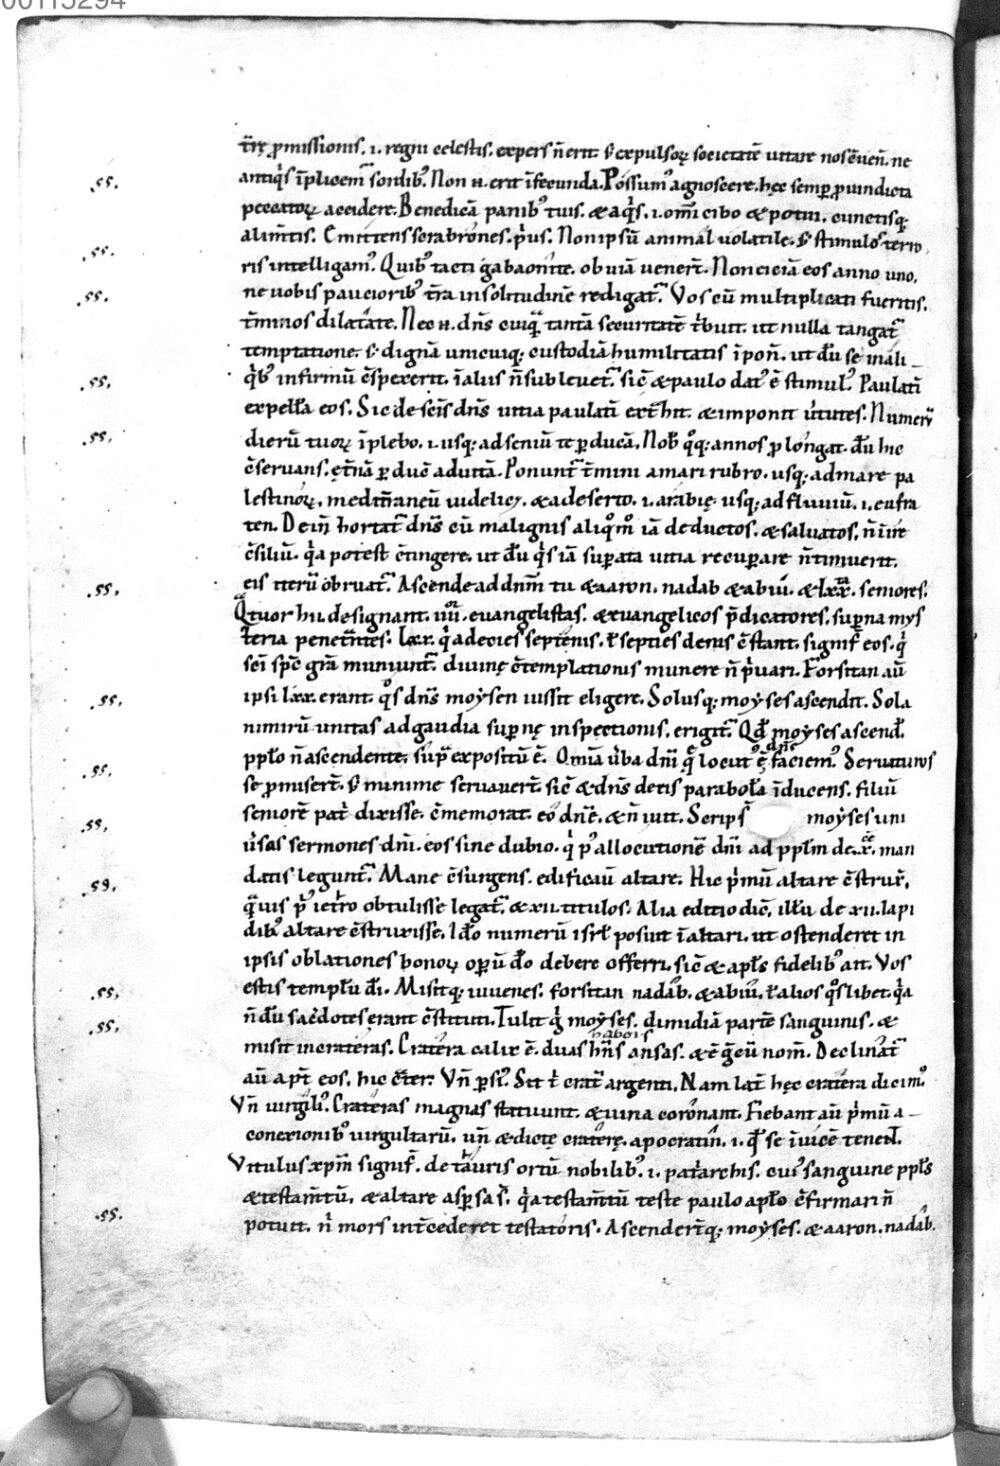 00115294
t̄rę ꝓmissionis. i. regni celestis. expers ñ erit. s; expulsoꝝ societatē uitare nos c̄uen̄. ne
antiq̄s īplicem̄ sordib᷒. Non .n. erit īfecunda. Possum᷒ agnoscere. hęc semꝑ ꝓ uindicta
peccatoꝝ accidere. Benedicā panib᷒ tuis. & aq̄s. i. om̄i cibo & potui. cunctisq;
alim̄tis. Emittens scrabrones. p̄us. Non ipsū animal uolatile. s; stimulos terro
ris intelligam᷒. Quib᷒ tacti gabaonitę. obuiā uener̄t. Non eiciā eos anno uno.
ne uobis paucioribus t̄ra in solitudinē redigat᷑. Vos cū multiplicati fueritis.
t̄minos dilatate. Nec .n. dn̄s cuiq̄ tantā securitatē t̄buit. ut nulla tangat᷑
temptatione. s; dignā unicuiq; custodiā humilitatis īpon̄. ut dū se in ali
q̄b᷒ infirmū c̄spexerit. ī alus ñ subleuet᷑. sic̄ & paulo dat᷒ ē stimul᷒. Paulatī
expellā eos. Sic de sc̄is dn̄s uitia paulatī ext̄hit. & imponit ūtutes. Numerū
dierū tuoꝝ īplebo. i. usq; ad seniū te ꝑducā. Nob̄ q̊q; annos ꝓlongat. dū hic
c̄seruans. ęt̄nā ꝑducē ad uitā. Ponunt᷑ t̄mini a mari rubro. usq; ad mare pa
lestinoꝝ. medit̄raneū uidelic&. & a deserto. i. arabię usq; ad fluuiū. i. eufra
ten. Dein̄ hortat᷑ dn̄s cū malignis aliq̊m̊ iā deductos. & salvatos. ñ inire
c̄siliū. q̄a potest c̄tingere. ut dū q̄s iā suꝑata uitia recuꝑare ñ timuerit.
eis iterū obruat᷑. Ascende ad dn̄m tu & aaron. nadab & abiu. & lxx. seniores.
Qtuor hii designant. iiii. euangelistas. & euangelicos p̄dicatores. suꝑna mys
teria penet̄ntes. lxx. q̄ a decies septenis. ł septies denis c̄stant. signif̄ eos. q̄
sc̄i sp̄c gr̄a muniunt᷑. diuinę c̄templationis munere ñ p̄uari. Forsitan aū
ipsi lxx. erant. q̊s dn̄s moysen iussit eligere. Solusq; moyses ascendit. Sola
nimirū unitas ad gaudia suꝑnę inspectionis. erigit᷑. Qđ moyses ascend̄.
pp̄lo ñ ascendente. sup̄ expositū ē. Omīa ūba dn̄i q̄ locut᷒ ē dn̄s faciem᷒. Seruituros
se ꝓmiser̄t. s; minime seruauer̄t. sic̄ & dn̄s de eis parabolā īducens. filiū
seniorē pat̄ dixisse. c̄memorat. eo dn̄e. & ñ iuit. Scrips᷑ moyses uni
ūsas sermones dn̄i. eos sine dubio. q̄ p᷒ allocutionē dn̄i ad pp̄lm de.x. man
datis legunt᷑. Mane c̄surgens. edificauit altare. Hic p̄mū altare c̄strux̄.
q̄uis p̄ iet̄ro obtulisse legat᷑. & xii. titulos. Alia editio dic̄. illū de xii. lapi
dib᷒ altare c̄struxisse. Ido numerū isr̄l posuit ī altari. ut ostenderet in
ipsis oblationes bonoꝝ oꝑū do debere offerri. sic̄ & apł̄s fidelib᷒ ait. Vos
estis templū di. Misitq; iuuenes. forsitan nadab. & abiu. ł alios q̊slibet. q̄a
ñ dū sac̄dotes erant c̄stituti. Tulit ḡ moyses. dimidiā partē sanguinis. &
misit in crateras. Cratera calix ē. duas habens ansas. & ē gn̄eū nom̄. Declinat᷑
aū apt̄ eos. hic c̄ter. Vn̄ ꝑsi᷒. Sit t̄ crat̄ argenti. Nam lat̄ hęc cratera dicim᷒
Vn̄ uirgili᷒. Crateras magnas statuunt. & uina coronant. Fiebant aū p̄mū a
conexionib᷒ uirgultarū. un̄ & dictę craterę. apocratin̄. i. q̄ se īuicē teneāt.
Vitulus xp̄m signif̄. de tauris ortū nobilib᷒. i. pat̄archis. cui᷒ sanguine pp̄ls
& testam̄tū. & altare asꝑsa s̄. q̄a testam̄tū teste paulo apłō c̄firmari ñ
potuit. n̄ mors int̄cederet testatoris. Ascender̄tq; moyses. & aaron. nadab.